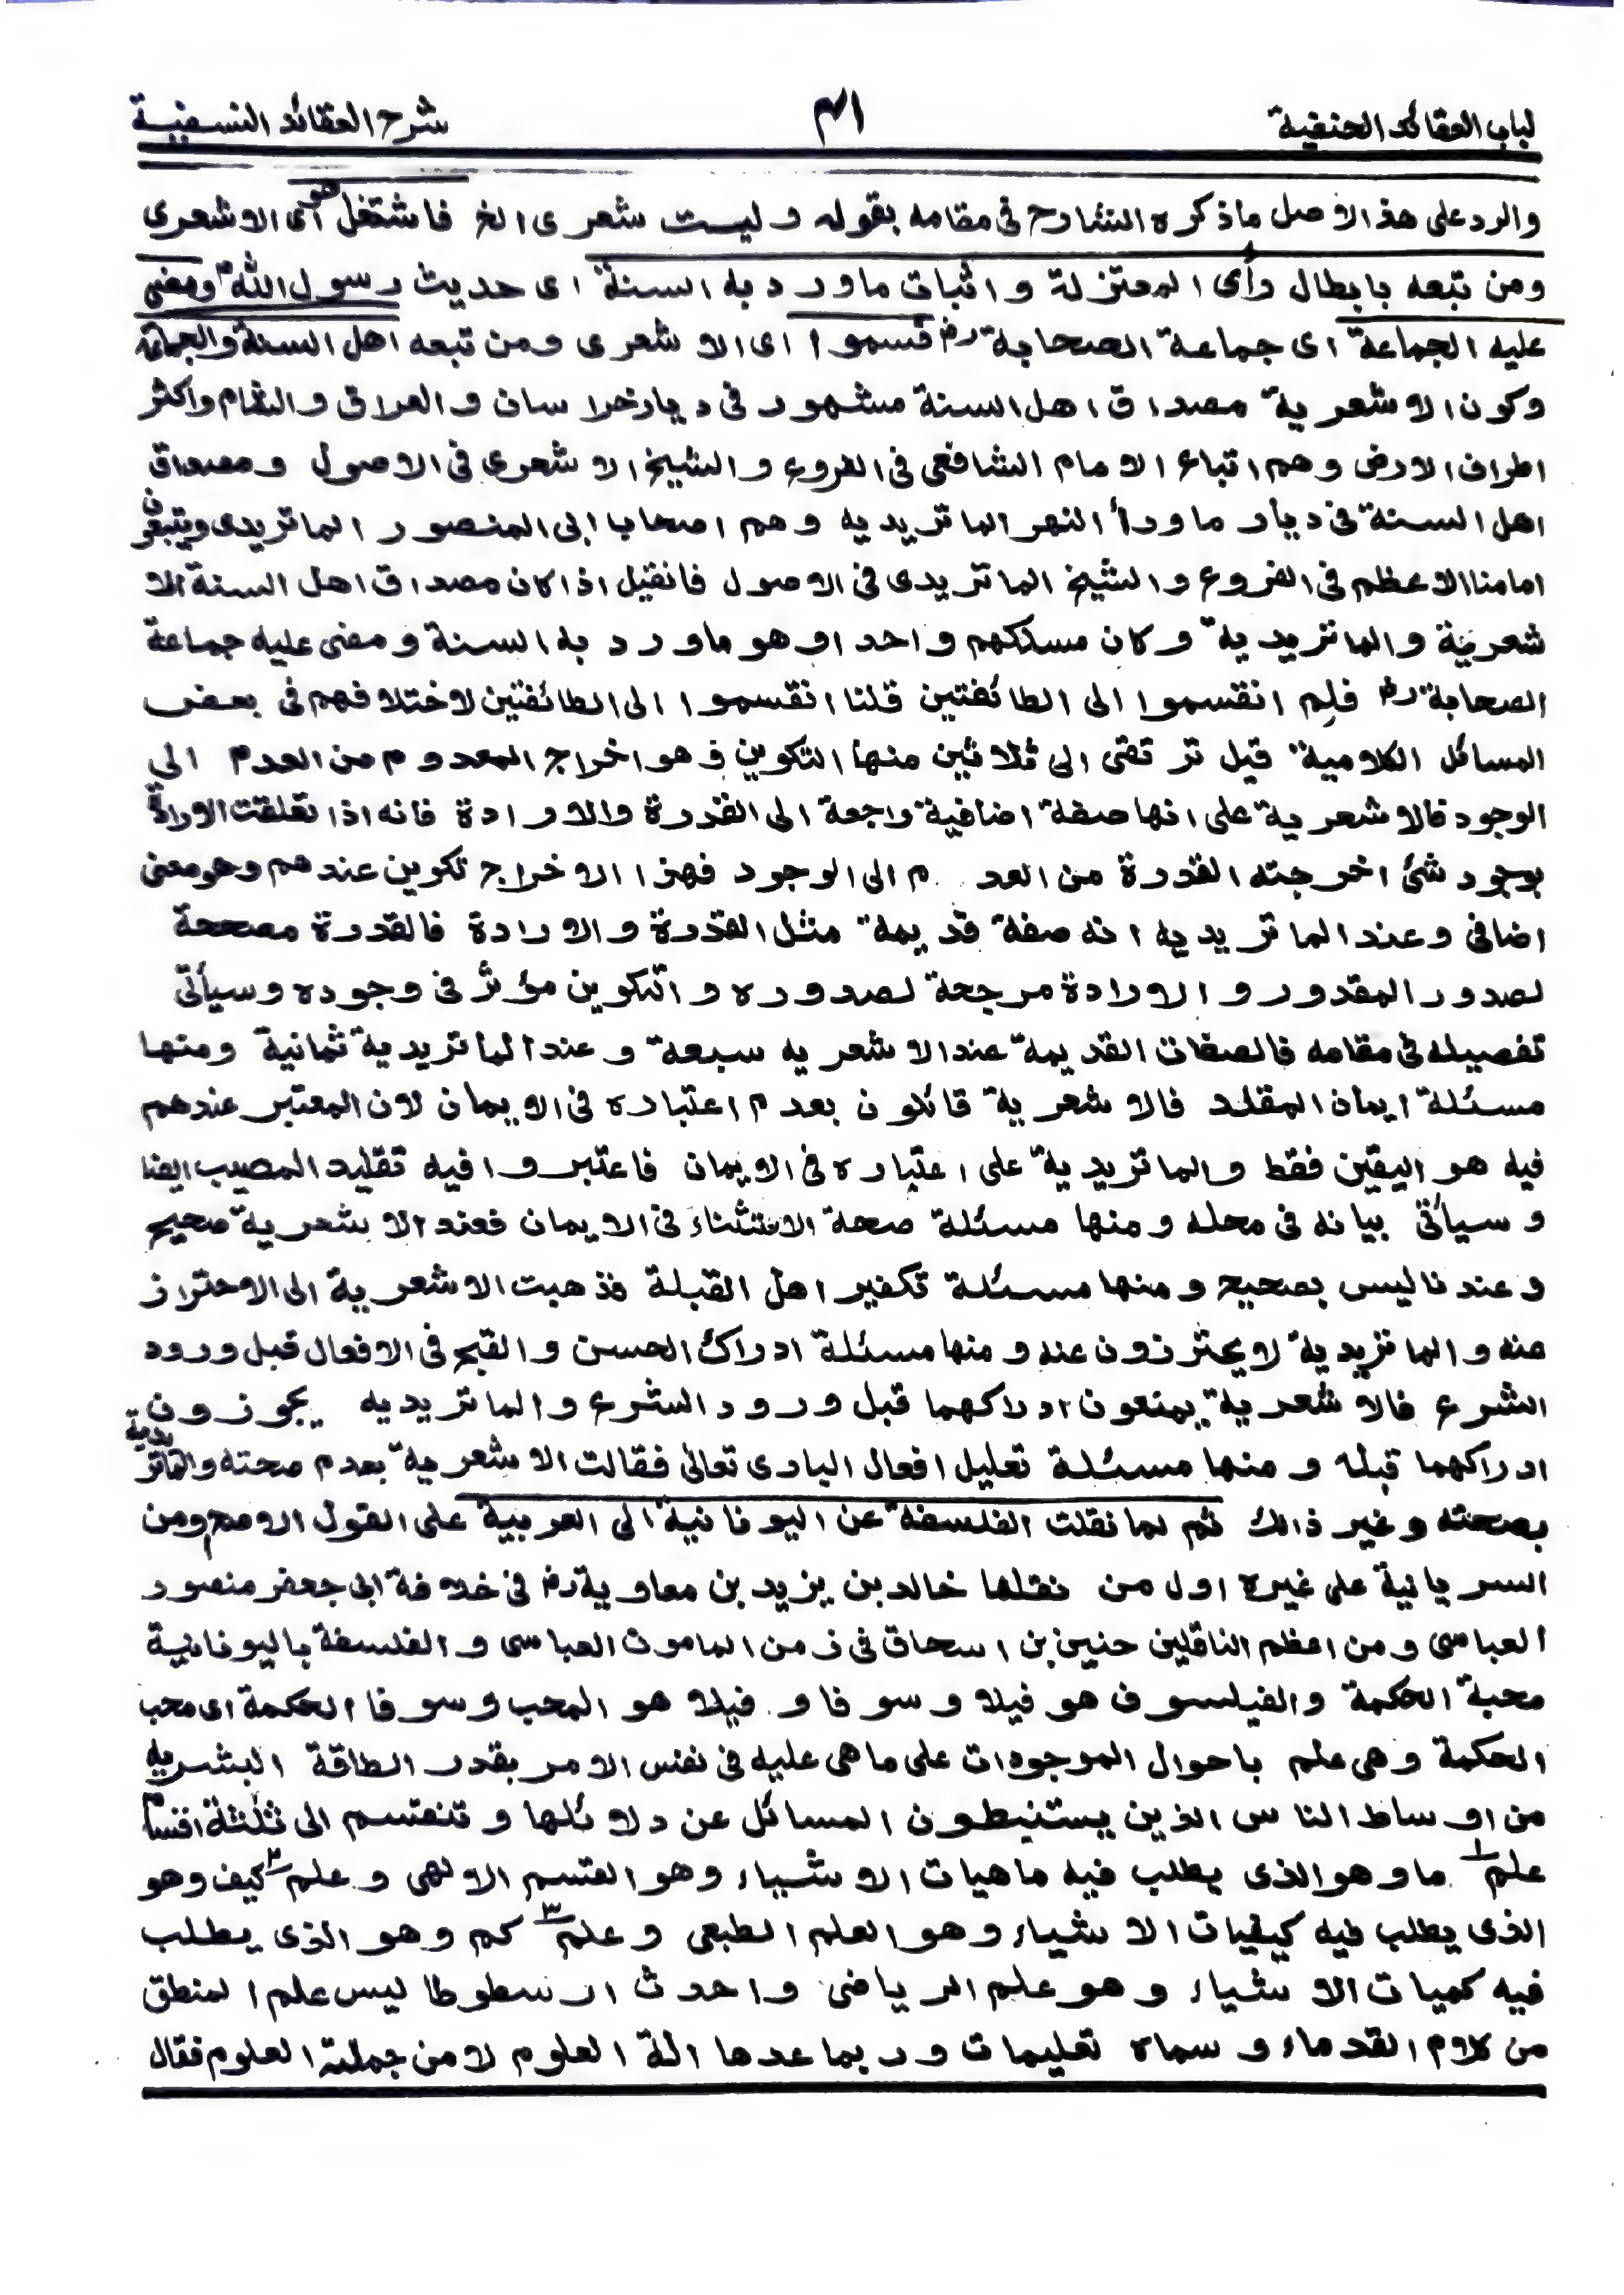 لباب العقائد الحنفية ٣١ شرح العقائد النسفية
والرد على هذ الاصل ماذكره الشارح فى مقامه بقوله وليست شعرى الخ فاشتغل هو اى الاشعرى
ومن تبعه بابطال رأى المعتزلة و اثبات ماورد به السنة اى حديث رسول الله ومضى
عليه الجماعة اى جماعة الصحابة رض فسموا اى الاشعرى ومن تبعه اهل السنة والجماعة
وكون الاشعرية مصداق اهل السنة مشهور فى ديار خراسان و العراق والشام واكثر
اطراف الارض وهم اتباع الامام الشافعى فى الفروع والشيخ الاشعرى فى الاصول ومصداق
اهل السنة فى ديار ماورأ النهر الماتريديه وهم اصحاب ابى المنصور الماتريدى ويتبعون
امامنا الاعظم فى الفروع والشيخ الماتريدى فى الاصول فانقيل اذا كان مصداق اهل السنة الا
شعرية والماتريدية وكان مسلكهم واحد او هو ماورد به السنة ومضى عليه جماعة
الصحابة رض فلم انقسموا الى الطائفتين قلنا انقسموا الى الطائفتين لاختلافهم فى بعض
المسائل الكلامية قيل ترتقى الى ثلاثين منها التكوين فهو اخراج المعدوم من العدم الي
الوجود فالاشعرية على انها صفة اضافية راجعة الى القدرة والارادة فانه اذا تعلقت الارادة
بوجود شئ اخرجته القدرة من العدم الى الوجود فهذا الاخراج تكوين عندهم وهو معنى
اضافى وعند الماتريديه انه صفة قديمة مثل القدرة والارادة فالقدرة مصححة
لصدور المقدور و الارادة مرجحة لصدوره و التكوين مؤثر فى وجوده وسيأتى
تفصيله فى مقامه فالصفات القديمة عند الاشعريه سبعة و عند الماتريدية ثمانية ومنها
مسئلة ايمان المقلد فالاشعرية قائلون بعدم اعتباره فى الايمان لان المعتبر عندهم
فيه هو اليقين فقط والماتريدية على اعتباره فى الايمان فاعتبروا فيه تقليد المصيب ايضا
و سيأتى بيانه فى محله ومنها مسئلة صحة الاستثناء فى الايمان فعند الاشعرية صحيح
و عندنا ليس بصحيح ومنها مسئلة تكفير اهل القبلة فذهبت الاشعرية الى الاحتراز
عنه والماتريدية لايحترزون عنه ومنها مسئلة ادراك الحسن والقبح فى الافعال قبل ورود
الشرع فالاشعرية يمنعون ادراكهما قبل ورود الشرع والماتريديه يجوزون
ادراكهما قبله ومنها مسئلة تعليل افعال البارى تعالى فقالت الاشعرية بعدم صحته والماتريدية
بصحته وغير ذالك ثم لما نقلت الفلسفة عن اليونانية الى العربية على القول الاصح ومن
السريانية على غيره اول من نقلها خالد بن يزيد بن معاوية رض فى خلافة ابى جعفر منصور
العباسى ومن اعظم الناقلين حنين بن اسحاق فى زمن المامون العباسى و الفلسفة باليونانية
محبة الحكمة والفيلسوف هو فيلا وسوفا و فيلا هو المحب وسوفا الحكمة اى محب
الحكمة وهى علم باحوال الموجودات على ماهى عليه فى نفس الامر بقدر الطاقة البشريه
من اوساط الناس الذين يستنبطون المسائل عن دلائلها و تنقسم الى ثلثة اقسام
علم ١ ما وهو الذى يطلب فيه ماهيات الاشياء وهو القسم الالهى و علم ٢ كيف وهو
الذى يطلب فيه كيفيات الاشياء وهو العلم الطبعى و علم ٣ كم وهو الذى يطلب
فيه كميات الاشياء وهو علم الرياضى واحدث ارسطوطاليس علم المنطق
من كلام القدماء و سماه تعليمات وربما عدها الة العلوم لامن جملة العلوم فقال